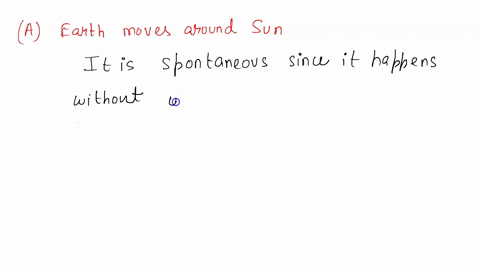 (A) Earth moves around Sun
It is spontaneous since it happens
without